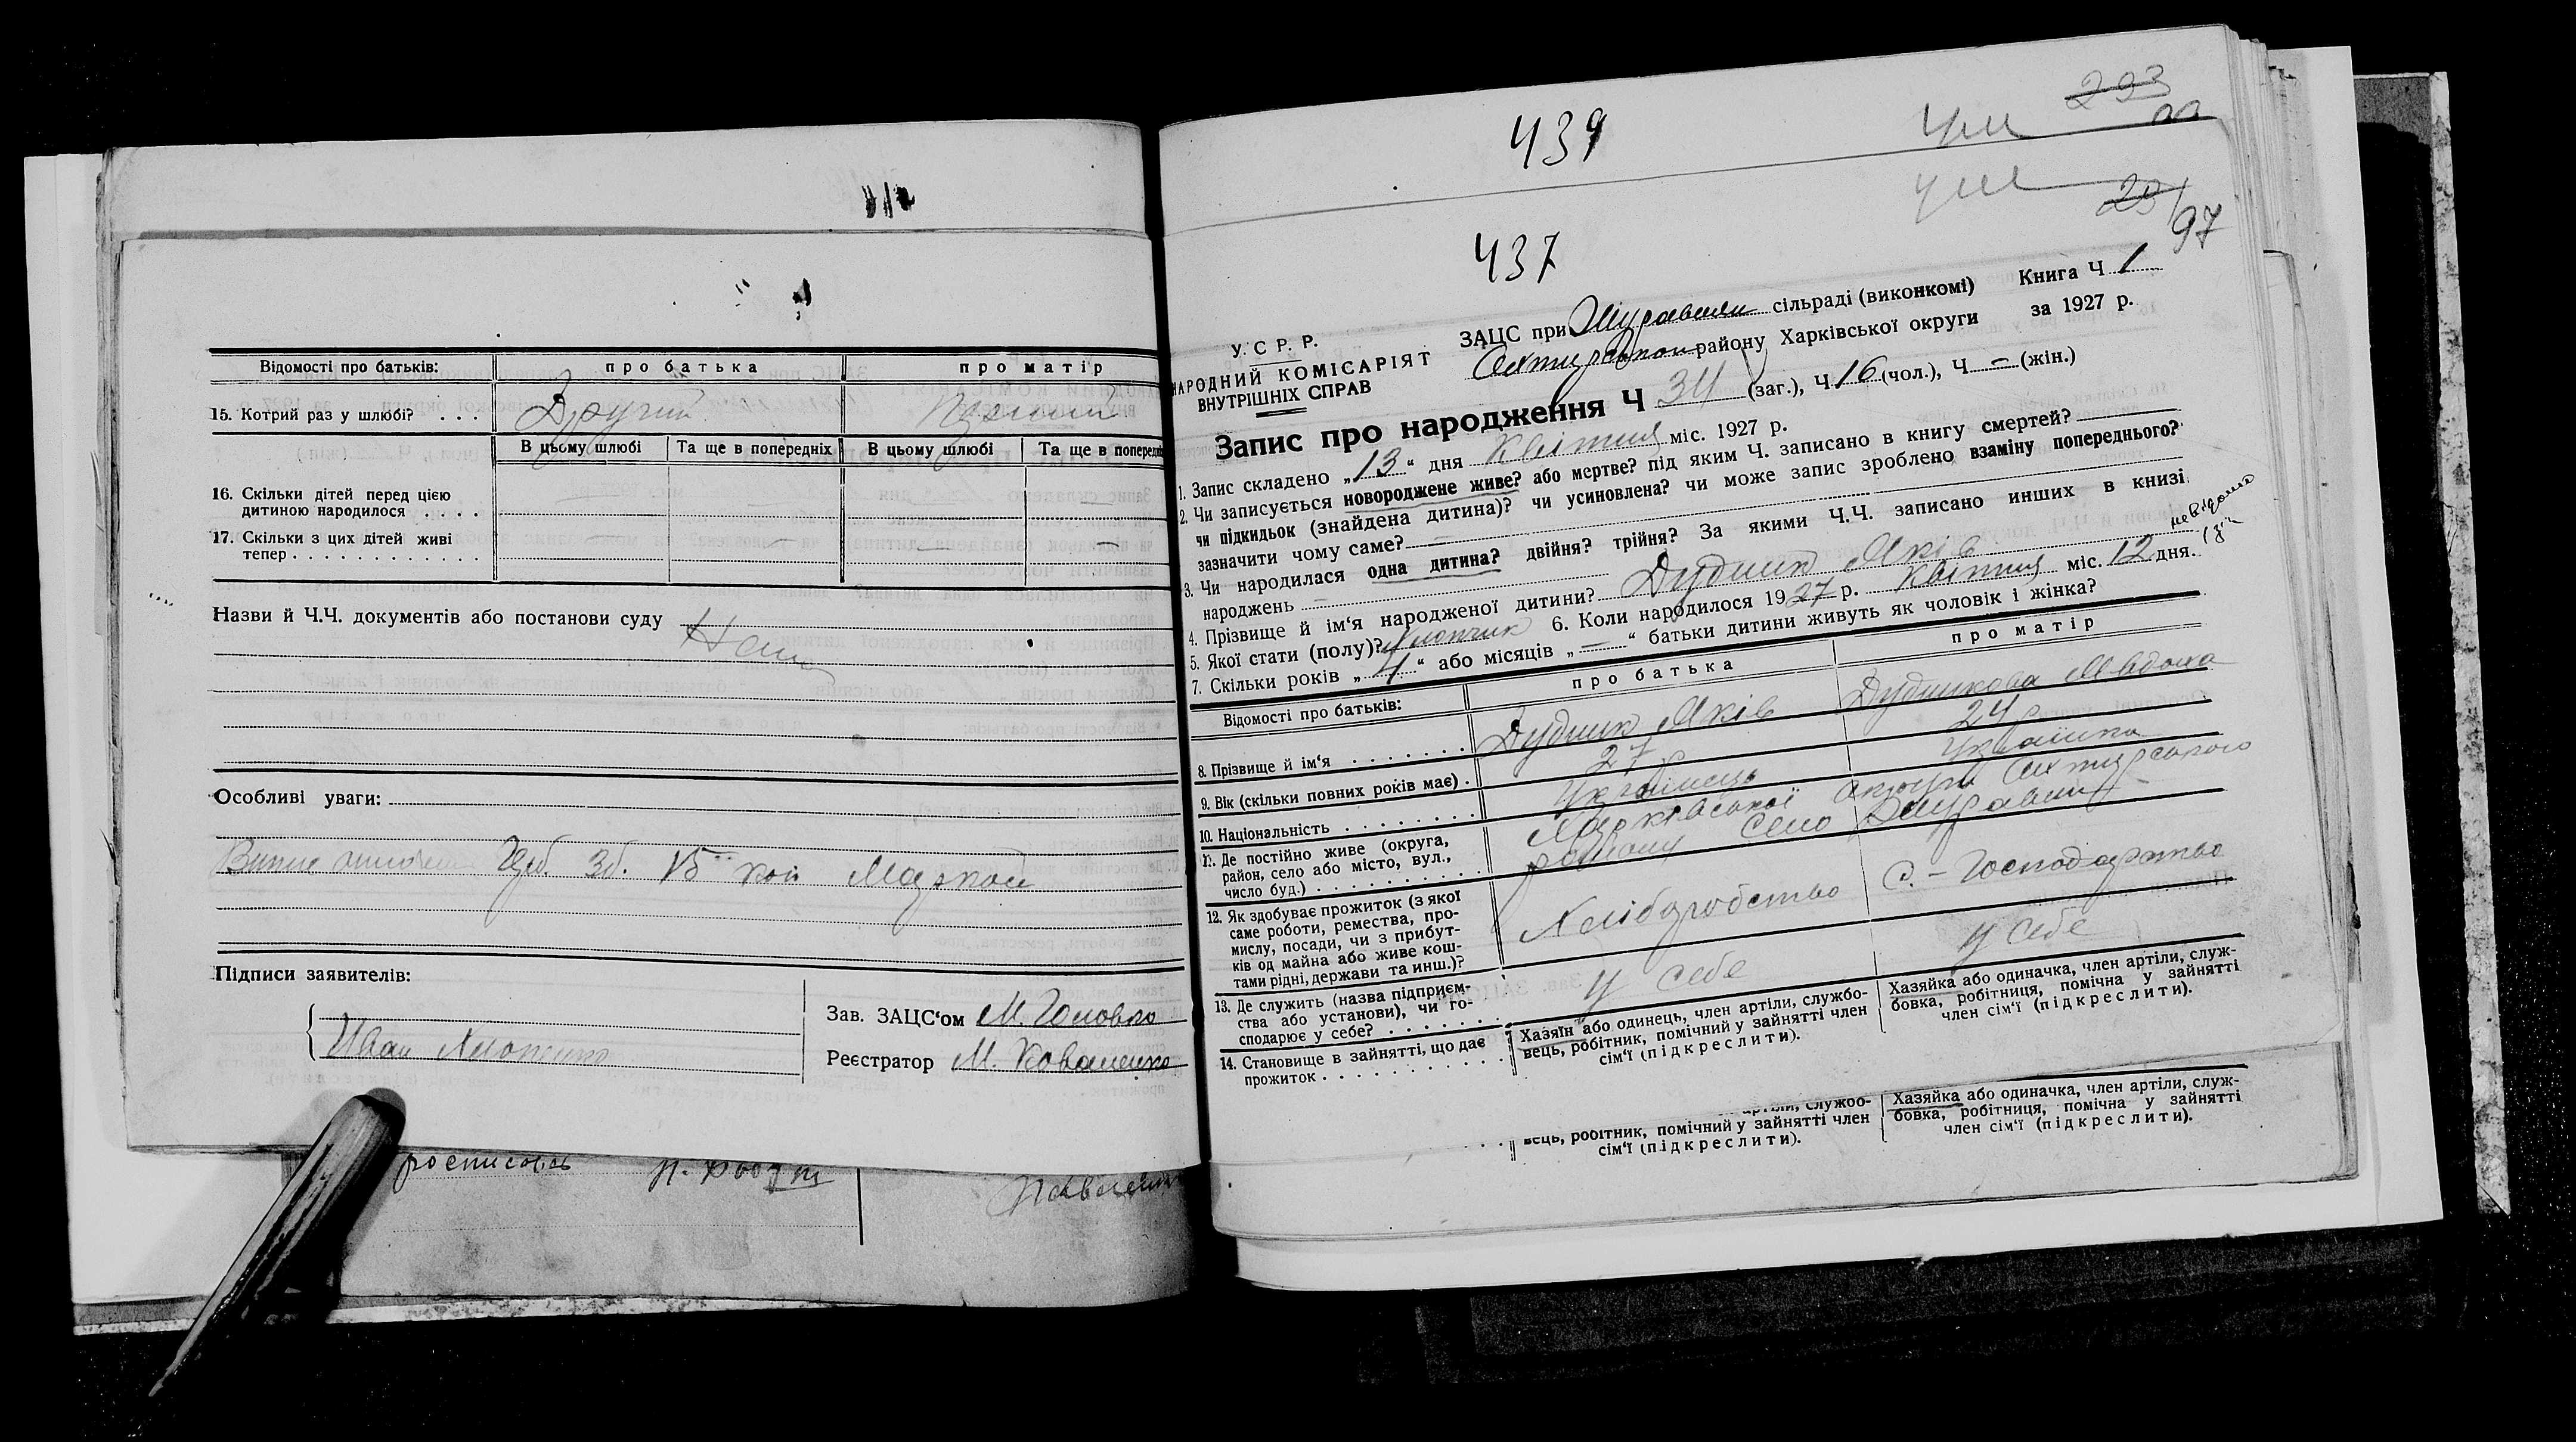 Відомості про батьків: про батька про матір
15. Котрий раз у шлюбі? . . . Другий
В цьому шлюбі Та ще в попередніх В цьому шлюбі Та ще в попередніх
16. Скільки дітей перед цією
дитиною народилося . . . . — — — —
17. Скільки з цих дітей живі
тепер . . . . . . . . . . . — — — —
Назви й Ч.Ч. документів або постанови суду
Особливі уваги:
Зб. 15 коп
Підписи заявителів:
Іван
Зав. ЗАЦС‘ом М. Головко
Реєстратор М. Коваленко
439
293
437
97
У. С Р. Р.
НАРОДНИЙ КОМІСАРІЯТ
ВНУТРІШНІХ СПРАВ
ЗАЦС при сільраді (виконкомі) Книга Ч 1
району Харківської округи за 1927 р.
Запис про народження Ч 34 (заг.), Ч. 16 (чол.), Ч — (жін.)
1. Запис складено „13“ дня Квітня міс. 1927 р.
2. Чи записується новороджене живе? або мертве? під яким Ч. записано в книгу смертей?
чи підкидьок (знайдена дитина)? чи усиновлена? чи може запис зроблено взаміну попереднього?
зазначити чому саме? —
3. Чи народилася одна дитина? двійня? трійня? За якими Ч.Ч. записано инших в книзі
народжень —
4. Прізвище й ім‘я народженої дитини? Дудник Яків
5. Якої стати (полу)? Хлопчик 6. Коли народилося 1927 р. Квітня міс. 12 дня.
7. Скільки років „4“ або місяців „—“ батьки дитини живуть як чоловік і жінка?
Відомості про батьків: про батька про матір
8. Прізвище й ім‘я . . . . . . . Дудник Яків Дудникова Явдоха
9. Вік (скільки повних років має) . 27 24
10. Національність . . . . . . . . Українець Українка
11. Де постійно живе (округа,
район, село або місто, вул.,
число буд.) . . . . . . . . . .
Харківської округи Охтирського
району Село
12. Як здобуває прожиток (з якої
саме роботи, ремества, про-
мислу, посади, чи з прибут-
ків од майна або живе кош-
тами рідні, держави та инш.)?
Хліборобство С.-Господарство
13. Де служить (назва підприєм-
ства або установи), чи го-
сподарює у себе? . . . . . . .
У себе У себе
14. Становище в зайнятті, що дає
прожиток . . . . . . . . . . .
Хазяїн або одинець, член артіли, службо-
вець, робітник, помічний у зайнятті член
сім‘ї (підкреслити).
Хазяйка або одиначка, член артіли, служ-
бовка, робітниця, помічна у зайнятті
член сім‘ї (підкреслити).
артіли, службо-
вець, робітник, помічний у зайнятті член
сім‘ї (підкреслити).
Хазяйка або одиначка, член артіли, служ-
бовка, робітниця, помічна у зайнятті
член сім‘ї (підкреслити).